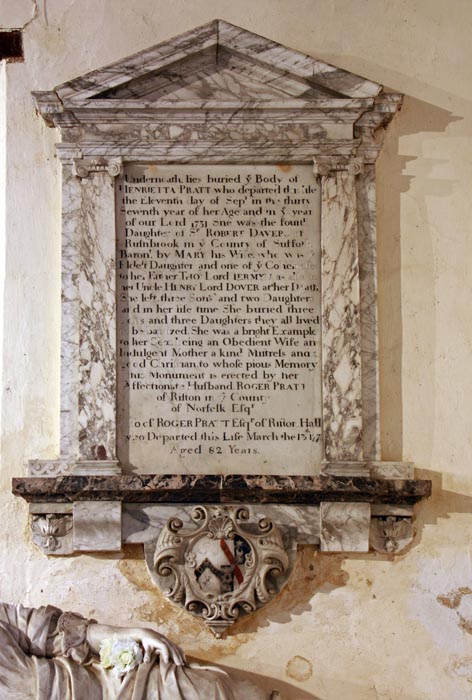 Underneath, lies buried yͤ Body of
HENRIETTA PRATT who departed this life
the Eleventh day of Sepͭ in the thirty
Seventh year of her Age and in yͤ year
of our Lord 1731 She was the fourth
Daughter of Sͬ ROBERT DAVERS of
Rushbrook in yͤ County of Suffolk
Baronͭ by MARY his Wife, who was
Eldest Daughter and one of yͤ
to her Father Thoͦ Lord IERMYN
her Uncle HENRY Lord DOVER after his Death,
She left, three Sons and two Daughters
and in her life time She buried three
Sons and three Daughters they all lived
to be baptized. She was a bright Example
to her Sex, being an Obedient Wife an
Indulgent Mother a kind Mistress and a
good Christian, to whose pious Memory
this Monument is erected by her
Affectionate Husband ROGER PRATT
of Riston in yͤ County
of Norfolk Esqͬ
Also of ROGER PRATT Esqͬ of Riston Hall
who Departed this Life March the
Aged 82 Years.